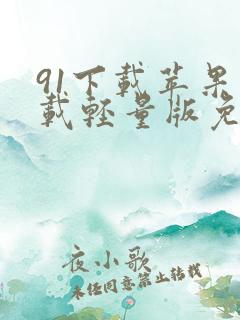 91下载苹果
载轻量版免
夜小歌
未经同意禁止转载